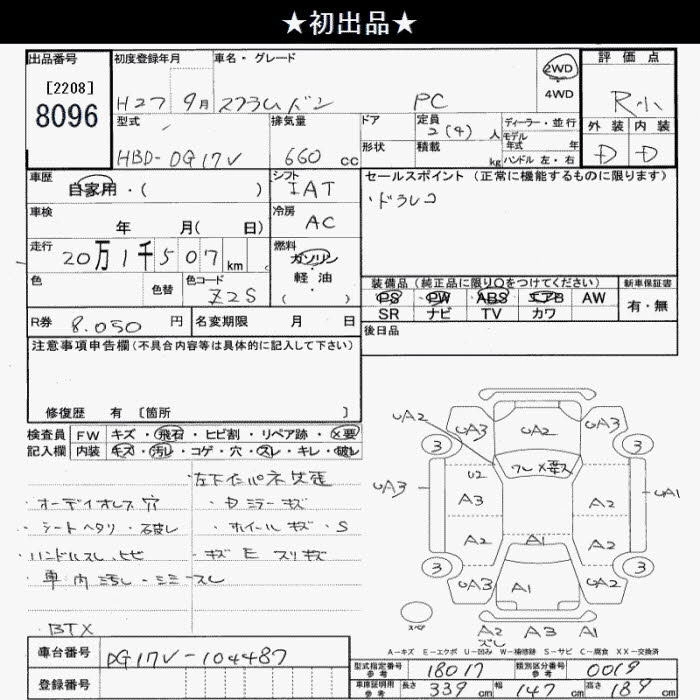 ★初出品★
出品番号
[2208]
8096
初度登録年月
H27 9月
車名・グレード
スクラムバン PC
2WD
4WD
評価点
R小
外装 内装
D D
型式
HBD-DG17V
排気量
660 cc
ドア
形状
定員
2(4) 人
積載
kg
ディーラー・並行
モデル
年式 年
ハンドル 左・右
車歴
自家用・( )
シフト
IAT
セールスポイント (正常に機能するものに限ります)
・ドラレコ
車検
年 月( 日)
冷房
AC
走行
20万1千507km
燃料
ガソリン
軽油
( )
色
色替
色コード
Z2S
装備品 (純正品に限り○をつけてください)
PS PW ABS エアB AW
SR ナビ TV カワ
新車保証書
有・無
R券 8.050 円
名変期限 月 日
後日品
注意事項申告欄 (不具合内容等は具体的に記入して下さい)
修復歴 有 [箇所 ]
検査員
記入欄
FW キズ・飛石・ヒビ割・リペア跡・×要
内装 キズ・汚レ・コゲ・穴・スレ・キレ・破レ
・オーディオレス穴
・シートヘタリ・破レ
・ハンドルスレ、ヒビ
・車内汚レ・シミ・スレ
BTX
・ホイールキズ・S
・キズEスリキズ
UA2
UA3
UA2
UA3
3
3
フレ×要ス
U2
UA3
A3
A2
UA1
A2
A1
A2
3
3
UA3
A1
UA2
スペア
A2 A3 A1
ズレ
A-キズ E-エクボ U-凹み W-補修跡 S-サビ C-腐食 XX-交換済
車台番号
DG17V-104487
登録番号
型式指定番号
参考
18017
類別区分番号
参考
0019
車庫証明用
参考
長さ 339 cm
幅 147 cm
高さ 189 cm